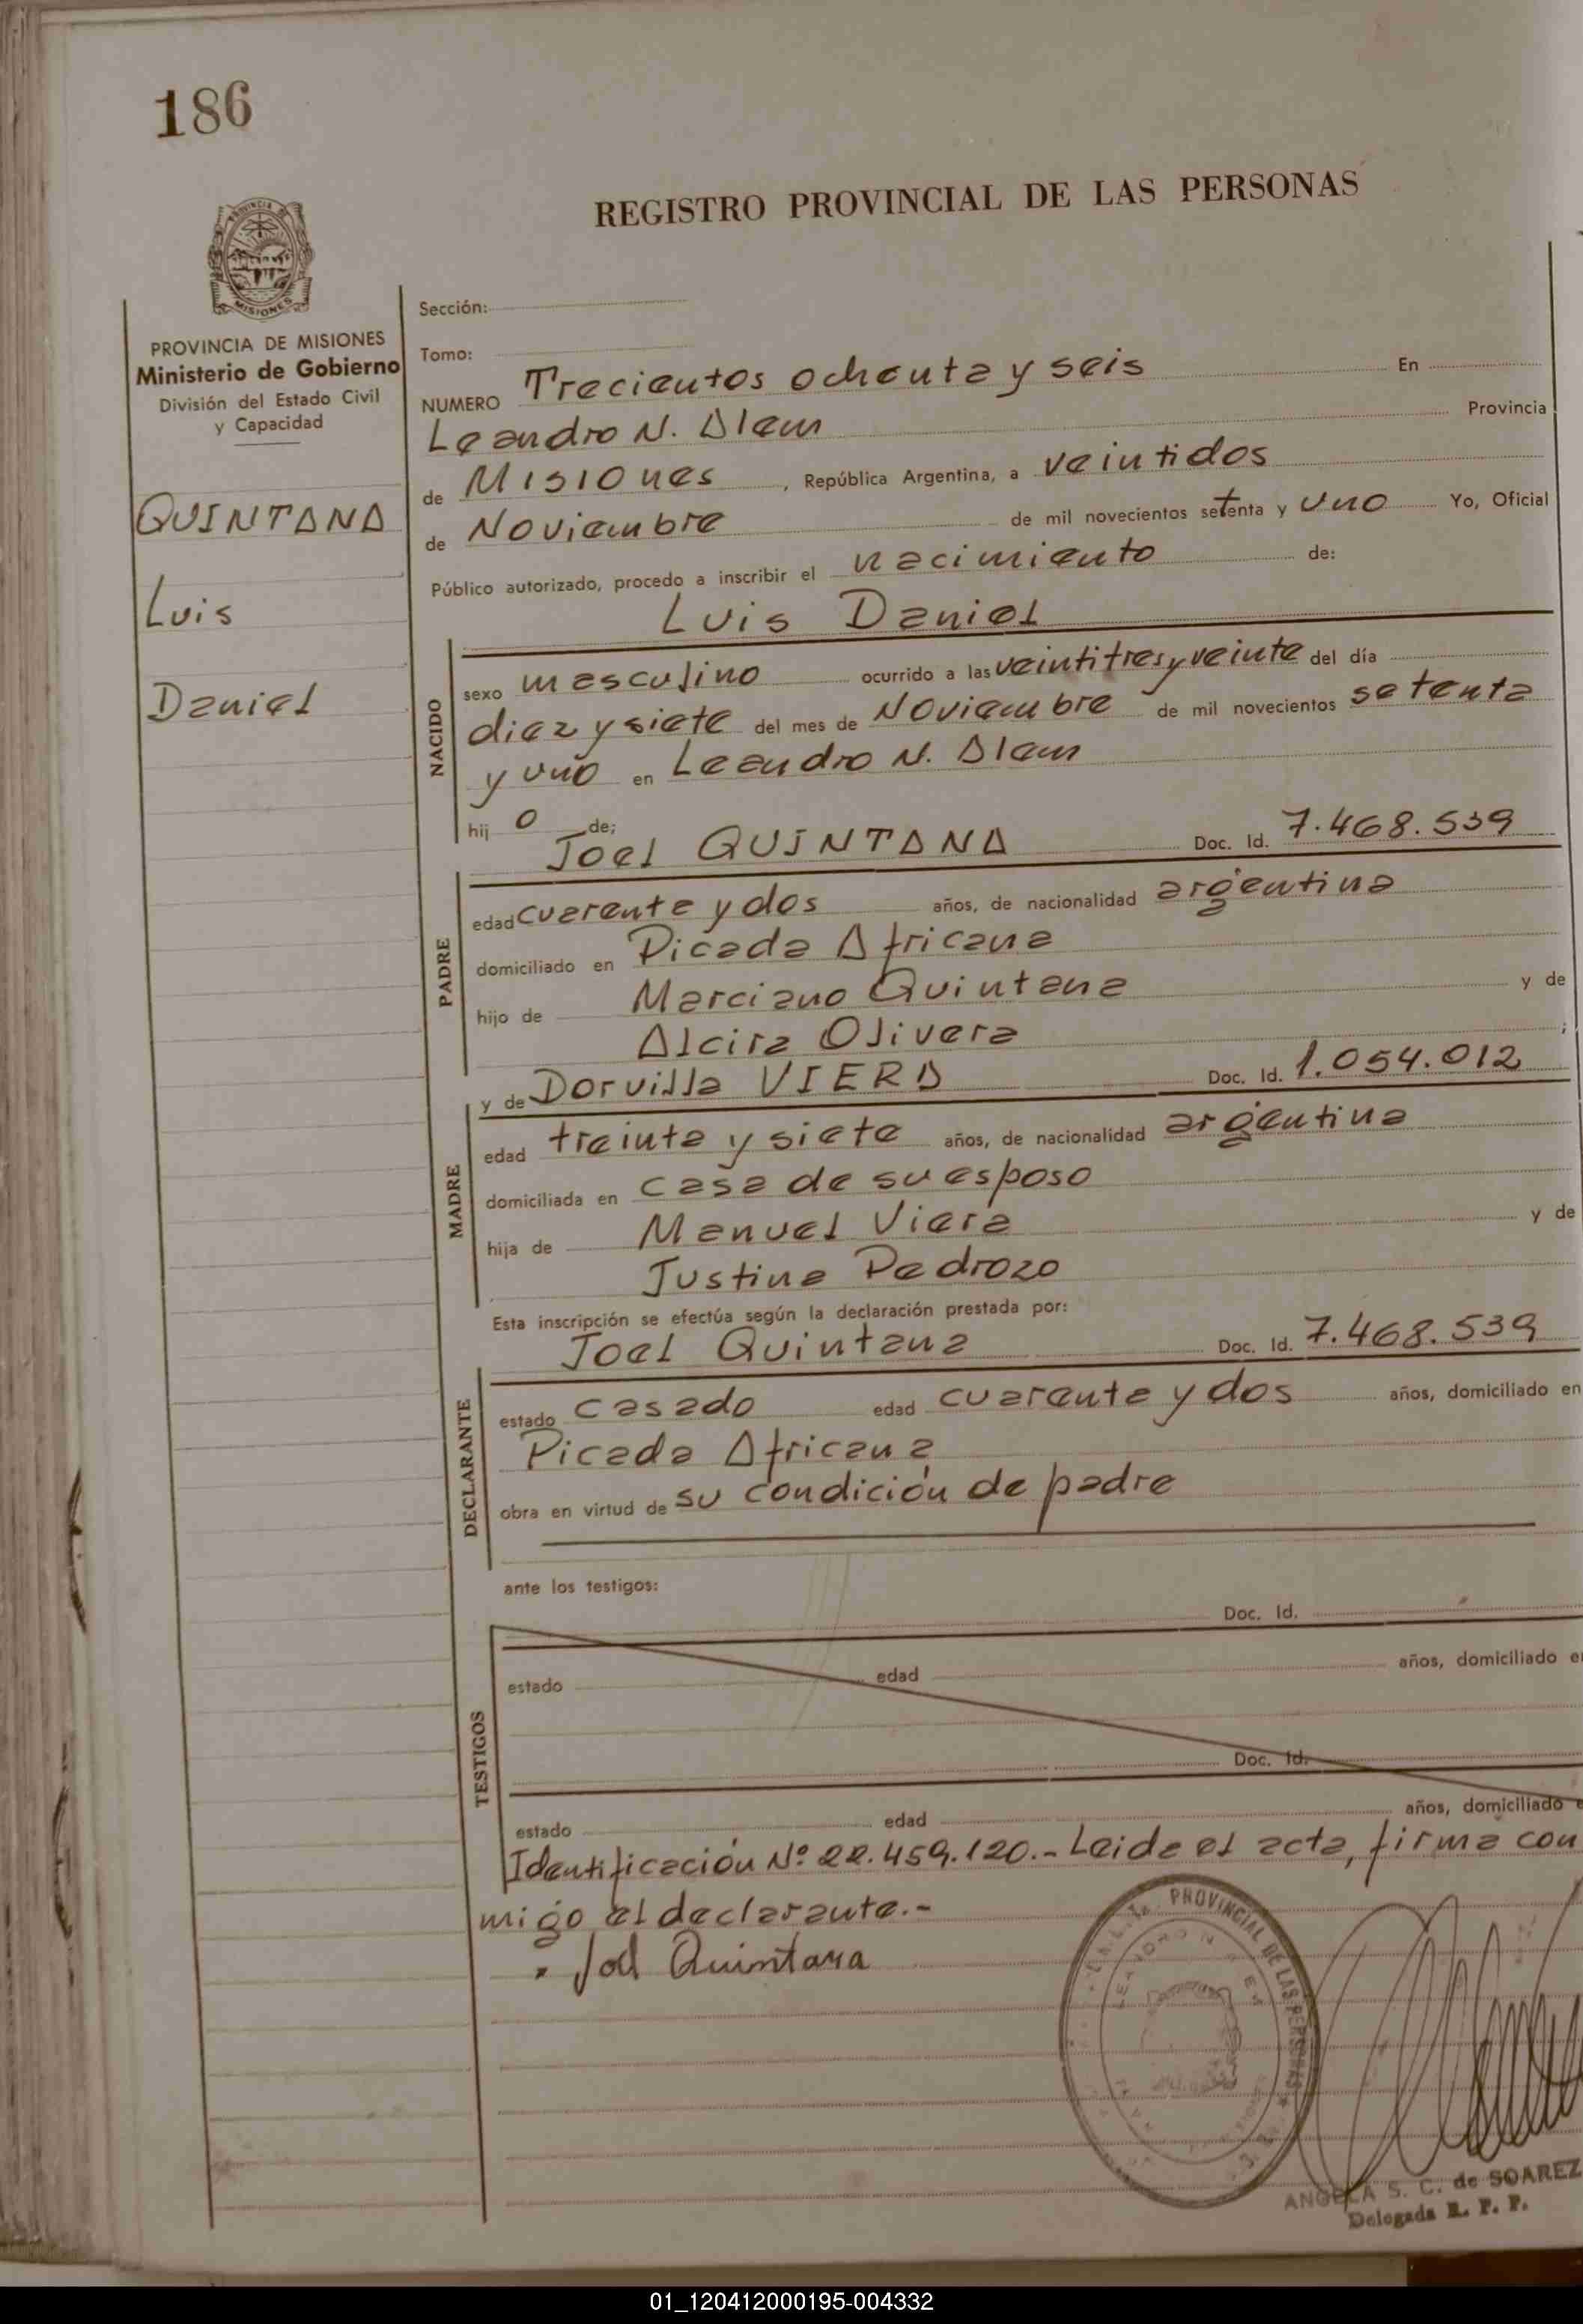 186
REGISTRO PROVINCIAL DE LAS PERSONAS
PROVINCIA DE
MISIONES
PROVINCIA DE MISIONES
Ministerio de Gobierno
División del Estado Civil
y Capacidad
QUINTANA
Luis
Daniel
Sección:
Tomo:
NUMERO Trecientos ochenta y seis En
Leandro N. Alem Provincia
de Misiones, República Argentina, a veintidos
de Noviembre de mil novecientos setenta y uno Yo, Oficial
Público autorizado, procedo a inscribir el nacimiento de:
Luis Daniel
NACIDO
sexo masculino ocurrido a las veintitres y veinte del día
diez y siete del mes de Noviembre de mil novecientos setenta
y uno en Leandro N. Alem
hij o de;
Joel QUINTANA Doc. Id. 7.468.539
PADRE
edad cuarenta y dos años, de nacionalidad argentina
domiciliado en Picada Africana
hijo de Marciano Quintana y de
Alcira Olivera ;
y de Dorvilla VIERA Doc. Id. 1.054.012
MADRE
edad treinta y siete años, de nacionalidad argentina
domiciliada en casa de su esposo
hija de Manuel Viera y de
Justina Pedrozo
Esta inscripción se efectúa según la declaración prestada por:
Joel Quintana Doc. Id. 7.468.539
DECLARANTE
estado casado edad cuarenta y dos años, domiciliado en
Picada Africana
obra en virtud de su condición de padre
ante los testigos:
Doc. Id.
TESTIGOS
estado edad años, domiciliado e
Doc. Id.
estado edad años, domiciliado e
Identificación Nº 22.459.120.- Leida el acta, firma con
migo el declarante.-
Joel Quintana
PROVINCIAL DE LAS PERSONAS
LEANDRO N. ALEM
ANGELA S. C. de SOAREZ
Delegada R. P. P.
01_120412000195-004332